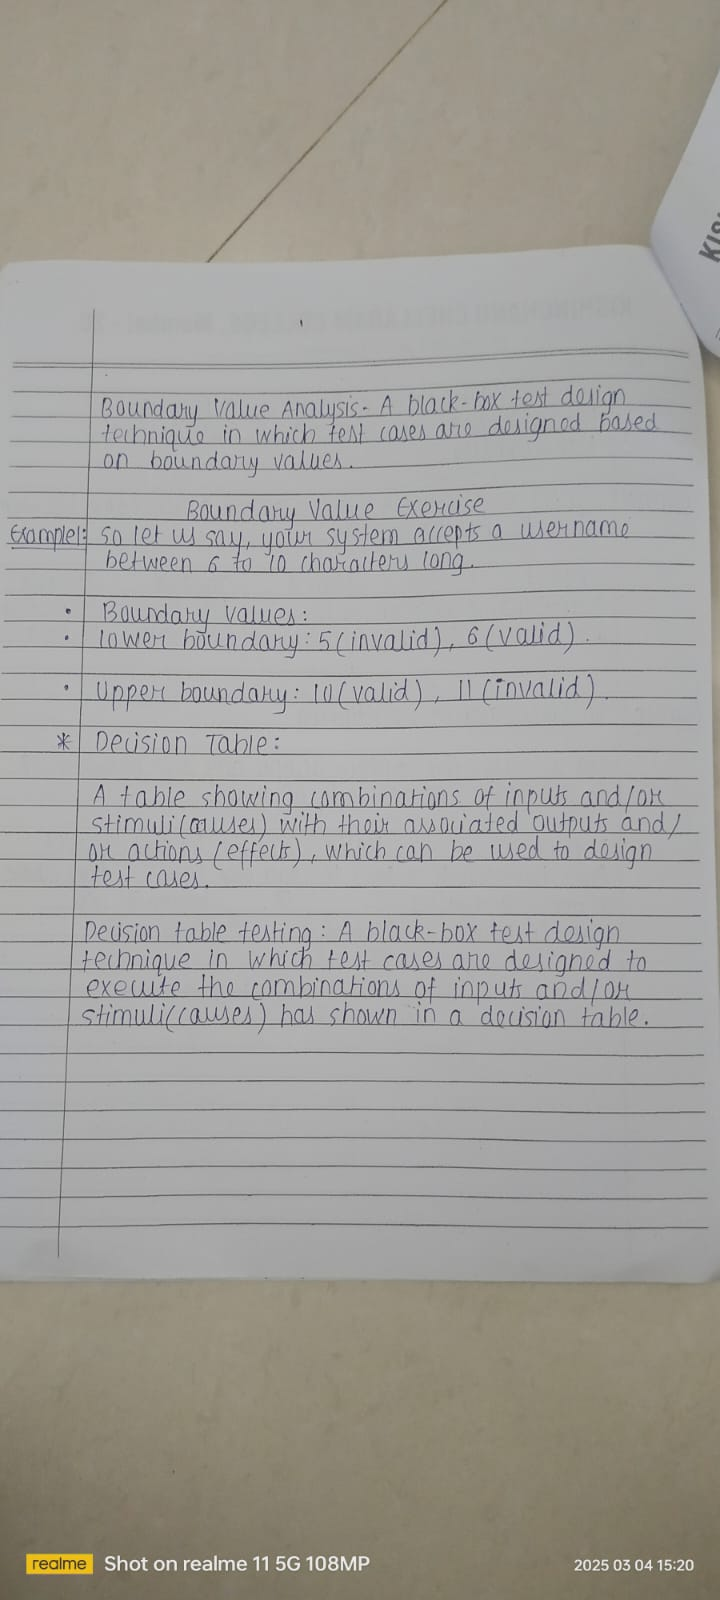 KIS
Boundary Value Analysis- A black-box test design
technique in which test cases are designed based
on boundary values.
Boundary Value Exercise
Example1: So let us say, your system accepts a username
between 6 to 10 characters long.
• Boundary values:
• Lower boundary: 5(invalid), 6(valid).
• Upper boundary: 10(valid), 11(invalid).
* Decision Table:
A table showing combinations of inputs and/or
stimuli(causes) with their associated outputs and/
or actions (effects), which can be used to design
test cases.
Decision table testing: A black-box test design
technique in which test cases are designed to
execute the combinations of inputs and/or
stimuli(causes) has shown in a decision table.
realme Shot on realme 11 5G 108MP 2025 03 04 15:20